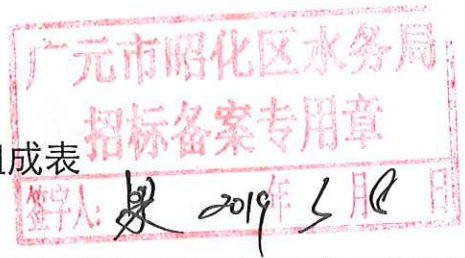 广元市昭化区水务局
招标备案专用章
成表
签字人: 2019年5月8日